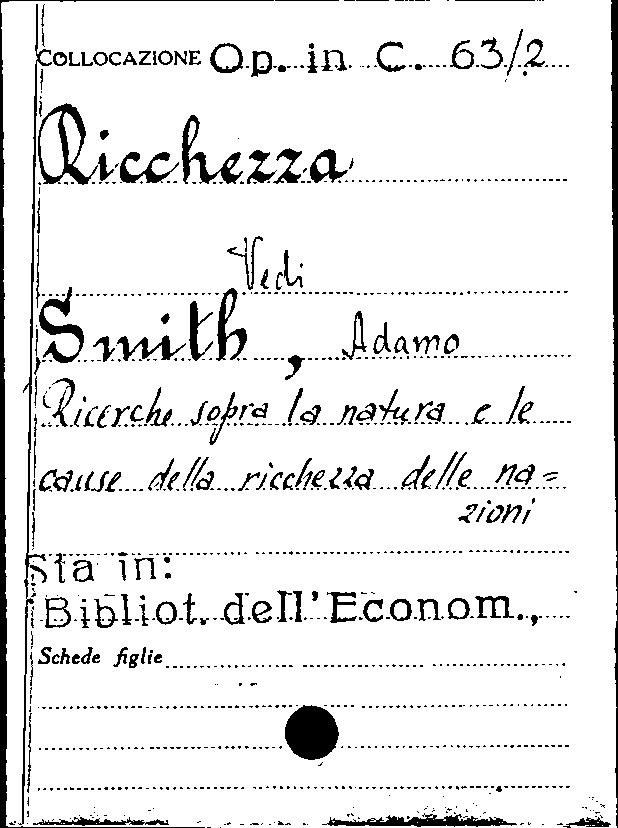 COLLOCAZIONE Op. in C. 63/2
Ricchezza
Vedi
Smith, Adamo
Ricerche sopra la natura e le
cause della ricchezza delle na=
zioni
Sta in:
Bibliot. dell'Econom.,
Schede figlie